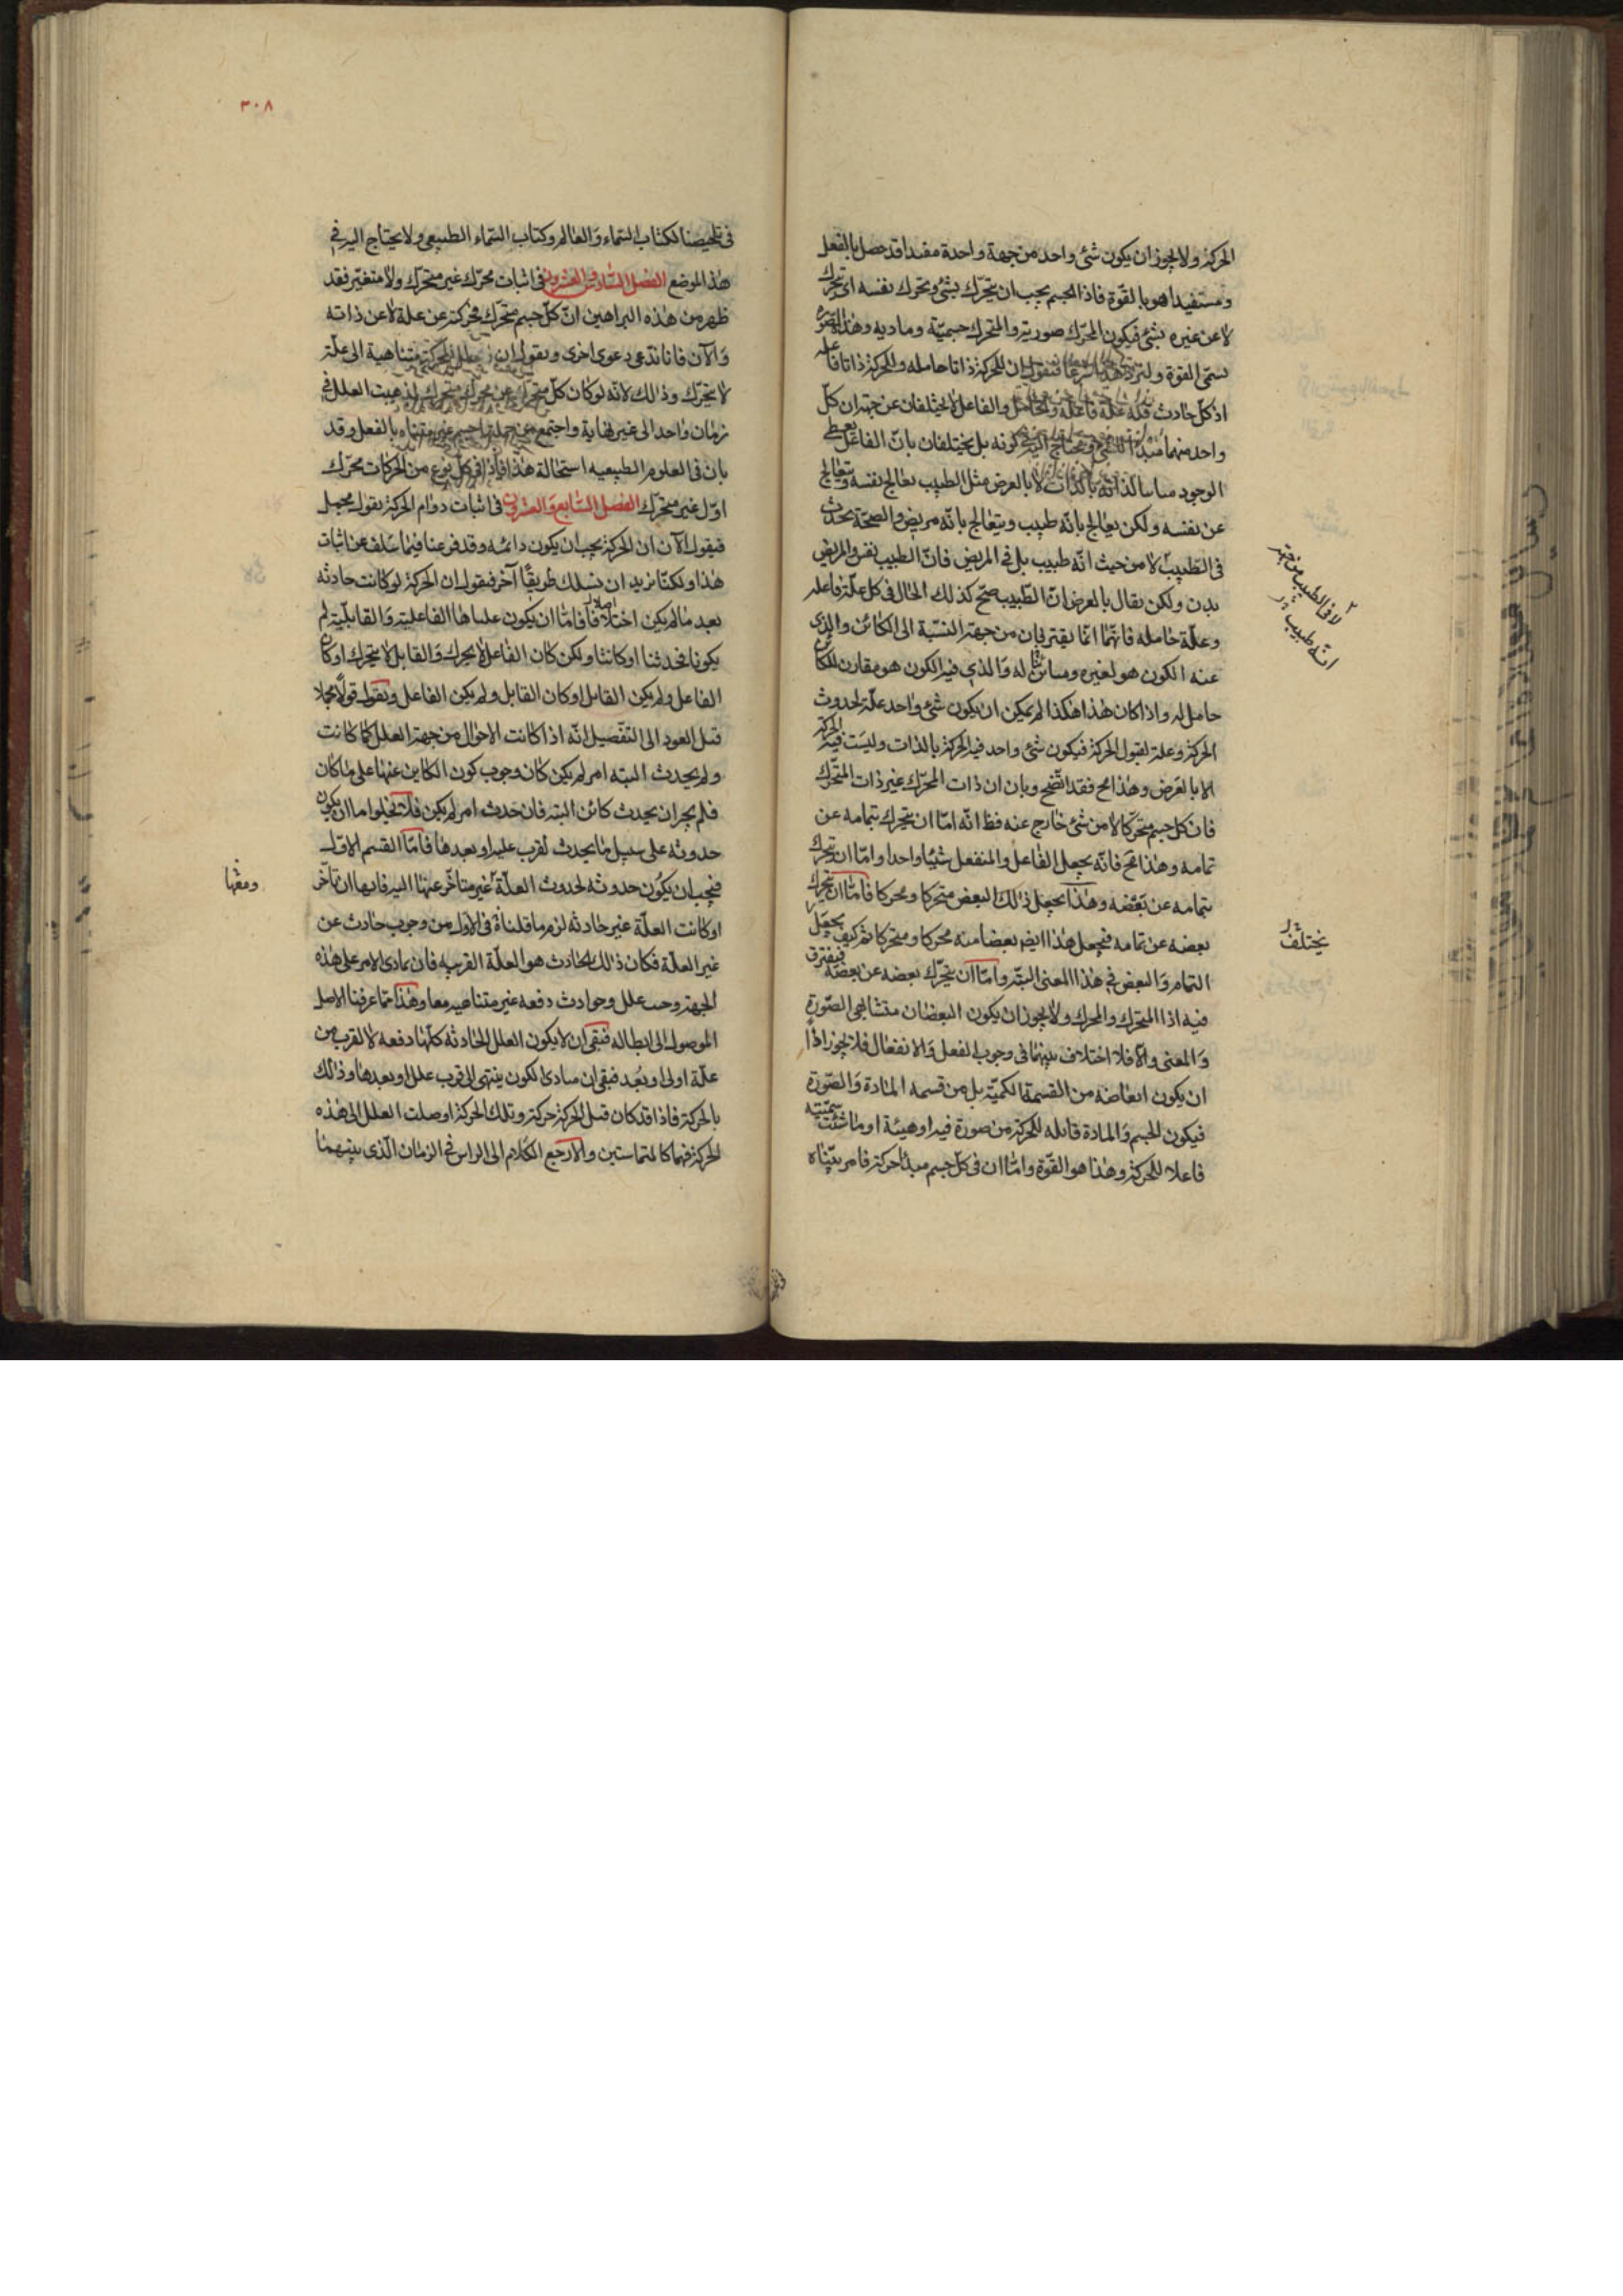 الحركة ولا يجوز ان يكون شئ واحد من جهة واحدة مفيدا قد حصل بالفعل
ومستفيدا هو بالقوة فاذا الجسم يجب ان يتحرك بشئ وتحرك نفسه اى تحرك
لا عن غيره بشئ فيكون المحرك صورته والمتحرك جسميته وماديه وهذا الصورة
تسمى القوة فنقول ان للحركة ذاتا حامله وللحركة ذاتا فاعله
اذ كل حادث فله علة فاعلة والحامل والفاعل لا يختلفان عن جهة ان كل
واحد منهما مبدأ كونه بل يختلفان بان الفاعل يعطى
الوجود مباينا لذاته بالذات لا بالعرض مثل الطبيب يعالج نفسه ويتعالج
عن نفسه ولكن يعالج بانه طبيب ويتعالج بانه مريض والصحة تحدث
فى الطبيب لا من حيث انه طبيب بل فى المريض فان الطبيب نفس والمريض
بدن ولكن يقال بالعرض ان الطبيب صح كذلك الحال فى كل علة فاعله
لا فى الطبيب من جهة
انه طبيب
وعلة حامله فانهما انما يفترقان من جهة النسبة الى الكائن والذى
عنه الكون هو لغيره ومباين له والذى فيه الكون هو مقارن للكائن
حامل له واذا كان هذا هكذا لم يمكن ان يكون شئ واحد علة لحدوث
الحركة وعلة لقبول الحركة فيكون شئ واحد فيه الحركة بالذات وليست فيه الحركة
الا بالعرض وهذا مح فقد اتضح وبان ان ذات المحرك غير ذات المتحرك
فان كل جسم متحركا لا من شئ خارج عنه فظ انه اما ان يتحرك بتمامه عن
تمامه وهذا مح فانه يجعل الفاعل والمنفعل شيئا واحدا واما ان يتحرك
بتمامه عن بعضه وهذا يجعل ذلك البعض متحركا ومحركا فاما ان يتحرك
بعضه عن تمامه فيجعل هذا ايضا بعضا منه محركا ومتحركا ثم كيف يجعل
يختلف
التمام والبعض فى هذا المعنى البتة واما ان يتحرك بعضه عن بعضه فيفترق
فيه اذا المتحرك والمحرك ولا يجوز ان يكون البعضان متشابهى الصورة
والمعنى والا فلا اختلاف بينهما فى وجوب الفعل والانفعال فلا يجوز اذا
ان يكون ابعاضه من القسمة الكمية بل من قسمه المادة والصورة
فيكون الجسم والمادة قابله للحركة من صورة فيه او هيئة او ما شئت سميته
فاعلا للحركة وهذا هو القوة واما ان فى كل جسم مبدأ حركة فامر بيناه
٣٠٨
فى تلخيصنا لكتاب السماء والعالم وكتاب السماء الطبيعى ولا يحتاج اليه فى
هذا الموضع الفصل السادس والعشرون فى اثبات محرك غير متحرك ولا متغير فقد
ظهر من هذه البراهين ان كل جسم متحرك فحركته عن علة لا عن ذاته
والآن فانا ندعى دعوى اخرى ونقول ان علل الحركة متناهية الى علة
لا تتحرك وذالك لانه لو كان كل متحرك عن محرك متحرك لذهبت العلل فى
زمان واحد الى غير نهاية واجتمع من جملة جسم غير متناه بالفعل وقد
بان فى العلوم الطبيعيه استحالة هذا فاذا فى كل نوع من الحركات محرك
اول غير متحرك الفصل السابع والعشرون فى اثبات دوام الحركة بقول مجمل
فنقول الآن ان الحركة يجب ان يكون دائمه وقد فرغنا فيما سلف عن اثبات
هذا ولكنا نريد ان نسلك طريقا آخر فنقول ان الحركة لو كانت حادثه
بعد ما لم يكن اختلافا فاما ان يكون علتاها الفاعلية والقابلية لم
يكونا فحدثنا او كانتا ولكن كان الفاعل لا يحرك والقابل لا يتحرك او كان
الفاعل ولم يكن القابل او كان القابل ولم يكن الفاعل ونقول قولا مجملا
قبل العود الى التفصيل انه اذا كانت الاحوال من جهة العلل كما كانت
ولم يحدث البته امر لم يكن كان وجوب كون الكاين عنها على ما كان
فلم يجز ان يحدث كائن البته فان حدث امر لم يكن فلا يخلوا اما ان يكون
حدوثه على سبيل ما يحدث لقرب علته او بعدها فاما القسم الاول
فيجب ان يكون حدوثه لحدوث العلة غير متأخر عنها البته فانها ان تأخر
ومعها
او كانت العلة غير حادثه لزم ما قلناه فى الاول من وجوب حادث عن
غير العلة فكان ذلك الحادث هو العلة القريبه فان تمادى الامر على هذه
الجهة وجب علل وحوادث دفعه غير متناهيه معا وهذا مما عرفنا الاصل
الموصول الى ابطاله فبقى ان لا يكون العلل الحادثه كلها دفعه لا لقرب من
علة اولى او بعد فبقى ان مبادى الكون ينتهى الى قرب علل او بعدها وذلك
بالحركة فاذا قد كان قبل الحركة حركة وتلك الحركة اوصلت العلل الى هذه
الحركة فهما كالمتماستين والا رجع الكلام الى الراس فى الزمان الذى بينهما